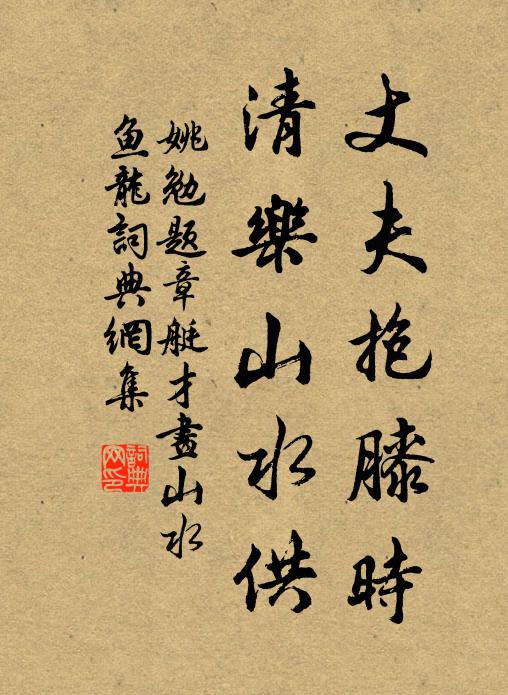 丈夫抱膝時
清樂山水供
姚勉题章艇才畫山水
鱼龍詞典網集
詞典
网印